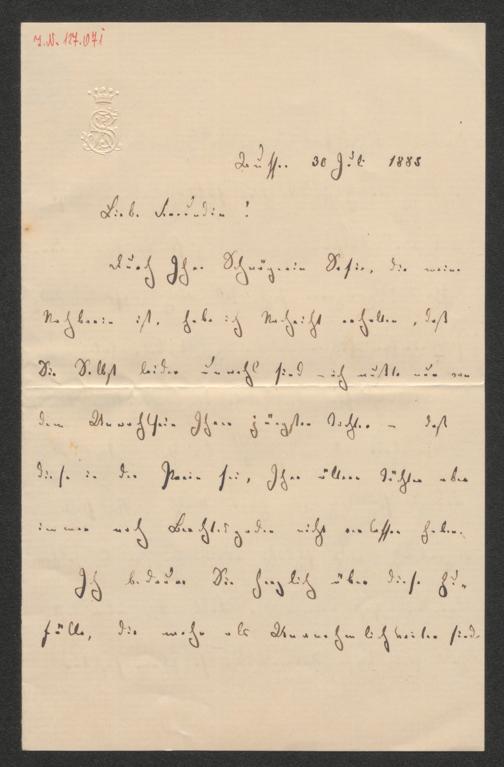 J.N. 127.071
Aussee 30 Juli 1885
Liebe Freundin!
Durch Ihre Schwägerin Sofie, die meine
Nachbarin ist, habe ich Nachricht erhalten, daß
Sie Selbst leider unwohl sind – ich wußte nur von
dem Unwohlsein Ihrer jüngsten Tochter – daß
diese in der sei, Ihre ältere Tochter aber
immer noch Berchtesgaden nicht verlassen habe.
Ich bedaure Sie herzlich über diese Zu-
fälle, die mehr als Unannehmlichkeiten sind.